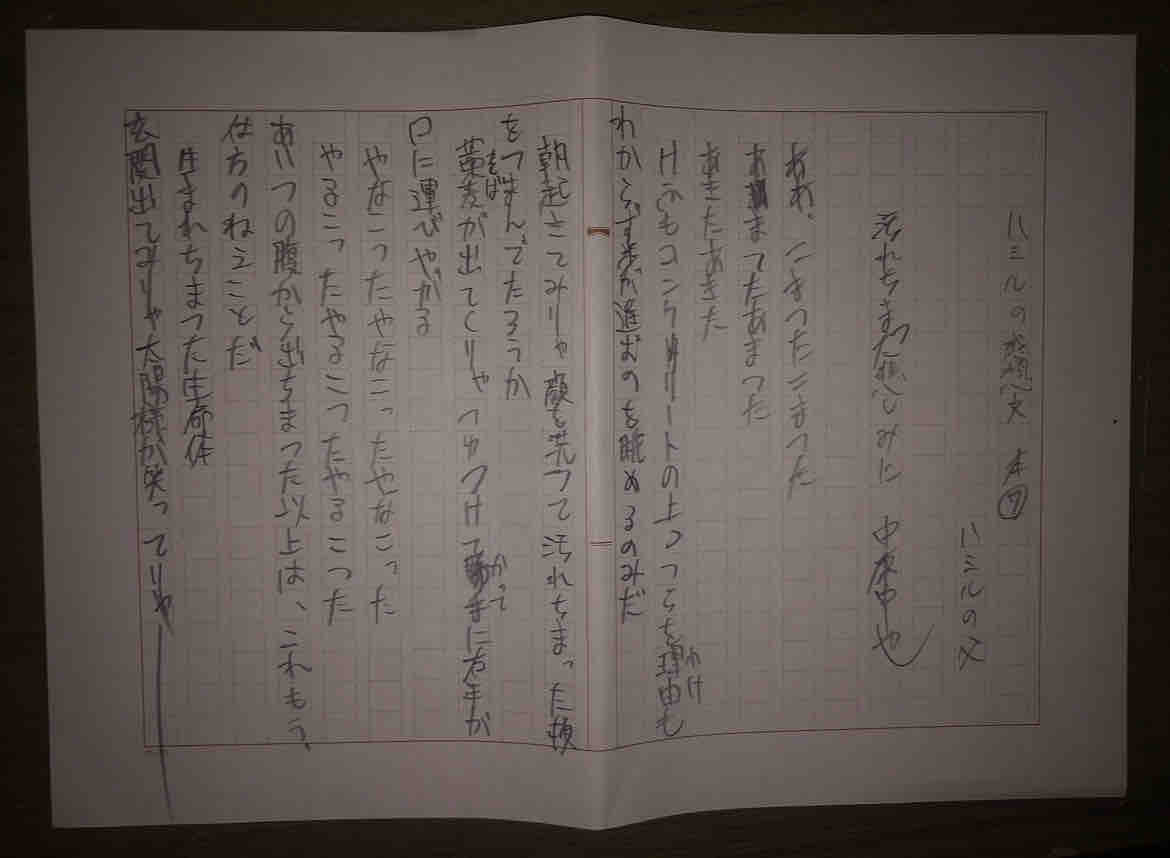 ハミルの感想文 その⑦
ハミルの父
汚れちまった悲しみに 中原中也
おお、こまつたこまつた
あまてたあまつた
あきたあきた
けふもコンクリートの上つつらを理由も
わけ
わからず歩が進むのを眺めるのみだ
朝起きてみりゃ顔を洗つて汚れちまった
をつまんでたろうか
蕎麦が出てくりゃつゆつけて勝手に右手が
そば
かって
口に運びやがる
やなこったやなこったやなこった
やるこったやるこったやるこった
あいつの腹から出ちまった以上は、これもう、
仕方のねえことだ
生まれちまった生命体
玄関出てみりゃ太陽様が笑ってりゃ――